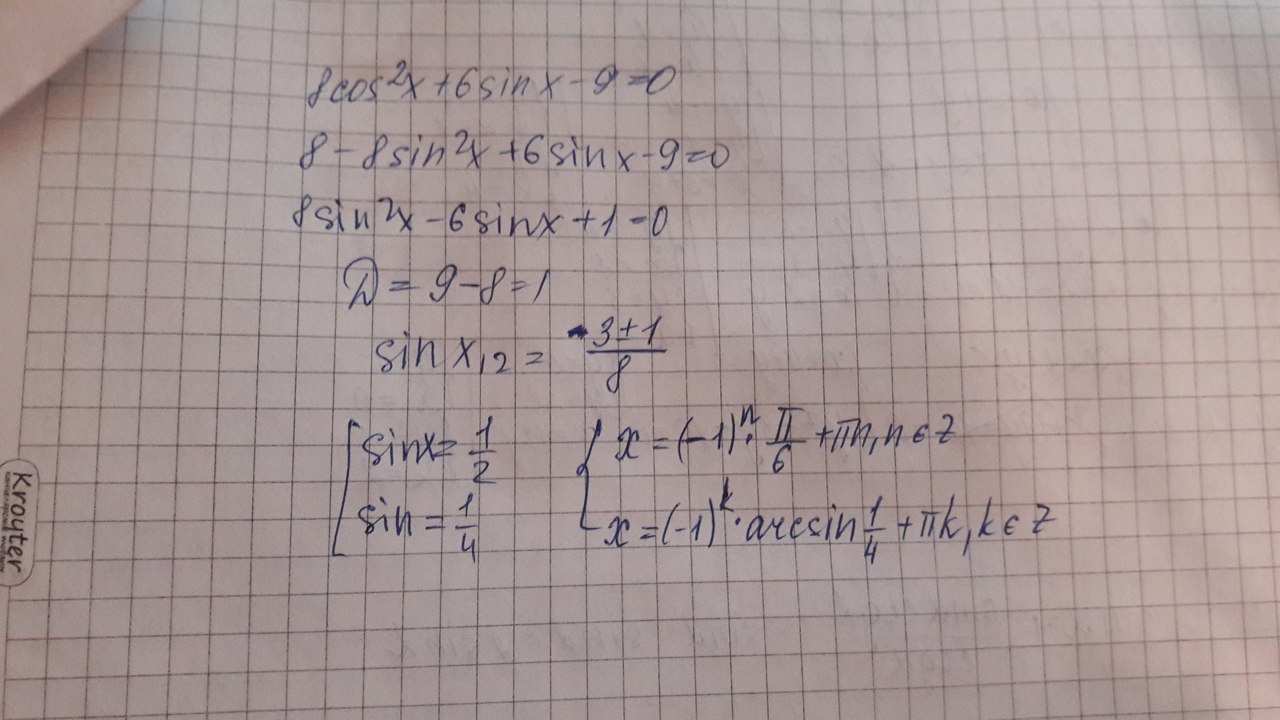 8cos²x+6sinx-9=0
8-8sin²x+6sinx-9=0
8sin²x-6sinx+1=0
D=9-8=1
sin x₁₂ = (3±1)/8
[sinx=1/2 [x=(-1)ⁿ·π/6+πn, n∈Z
[sin=1/4 [x=(-1)ᵏ·arcsin 1/4+πk, k∈Z
Kroyter